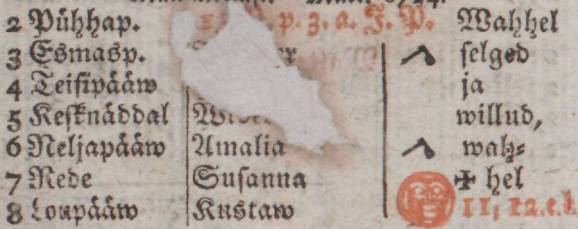 2 Pühhap. p. 3. a. J. P. Wahhel
3 Esmasp. selged
4 Teisipääw ja
5 Kesknäddal willud,
6 Neljapääw Amalia wah⸗
7 Rede Susanna ✠ hel
8 Loupääw Kustaw 11, 12.e.l.